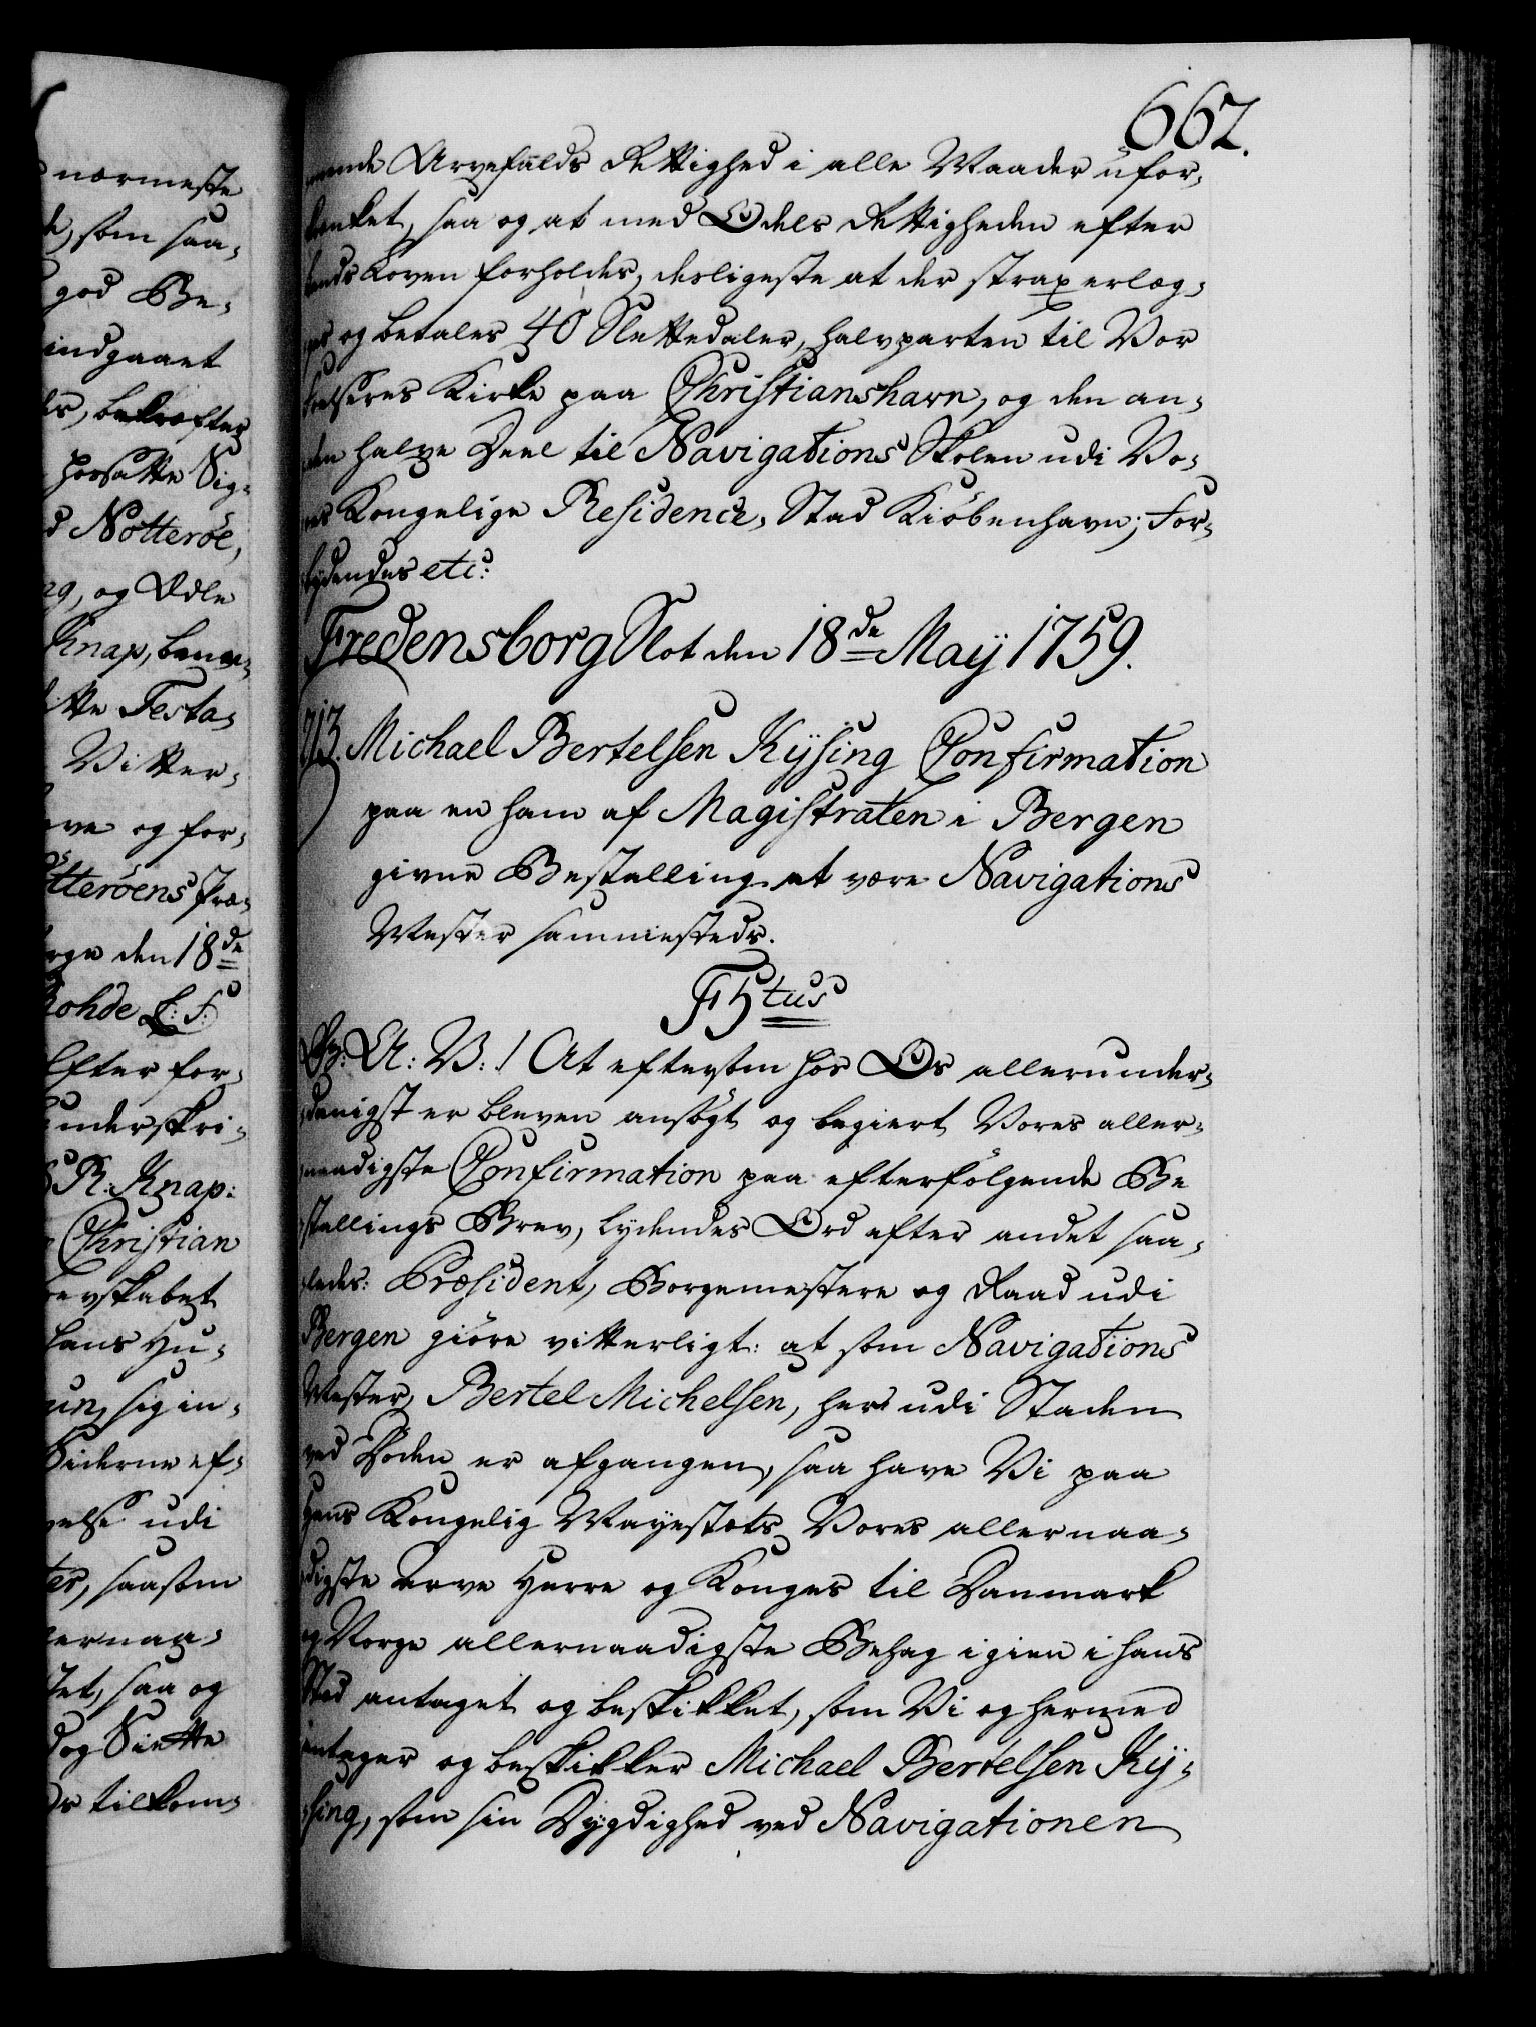 662.
mende Arvefalds Rettighed i alle Maader ufor-
krænket, saa og at med Odels Rettigheden efter
Lands Loven forholdes, desligeste at der strax erlæg-
ges og betales 40 Slettedaler, halvparten til Vor
Frelseres Kirke paa Christianshavn, og den an-
den halve Deel til Navigations Skolen udi Vo-
res Kongelige Residence-Stad Kiöbenhavn; For-
bydendes etc:
Fredensborg Slot den 18de May 1759.
713. Michael Bertelsen Kysing Confirmation
paa en ham af Magistraten i Bergen
given Bestalling at være Navigations
Mester sammesteds.
F5tus
G: A: V:! At eftersom hos Os allerunder-
danigst er bleven ansögt og begiert Vores aller-
naadigste Confirmation paa efterfölgende Be
stallings Brev, lydendes Ord efter andet saa-
ledes: Præsident, Borgemestere og Raad udi
Bergen giöre vitterligt: at som Navigations
Mester, Bertel Michelsen, her udi Staden
ved Döden er afgangen, saa have Vi paa
Hans Kongelig Mayestæts Vores allernaa-
digste Arve Herre og Konges til Danmark
og Norge allernaadigste Behag igien i hans
Sted antaget og beskikket, som Vi og hermed
antager og beskikker Michael Bertelsen Ky-
sing, som sin Dygdighed ved Navigationen
nærmeste
de, som saa-
god Be-
indgaaet
bekræfter
hossatte Sig-
Nötteröe,
og Ædle
Knap,
Testa-
Vitter-
og for-
tteröens Præ-
den 18de
Rohde L: S:
Efter for-
underskri-
R: Knap:
Christian
hans Hu-
sig in-
Siderne ef-
udi
saasom
lernaa-
saa og
dog Siette
tilkom-